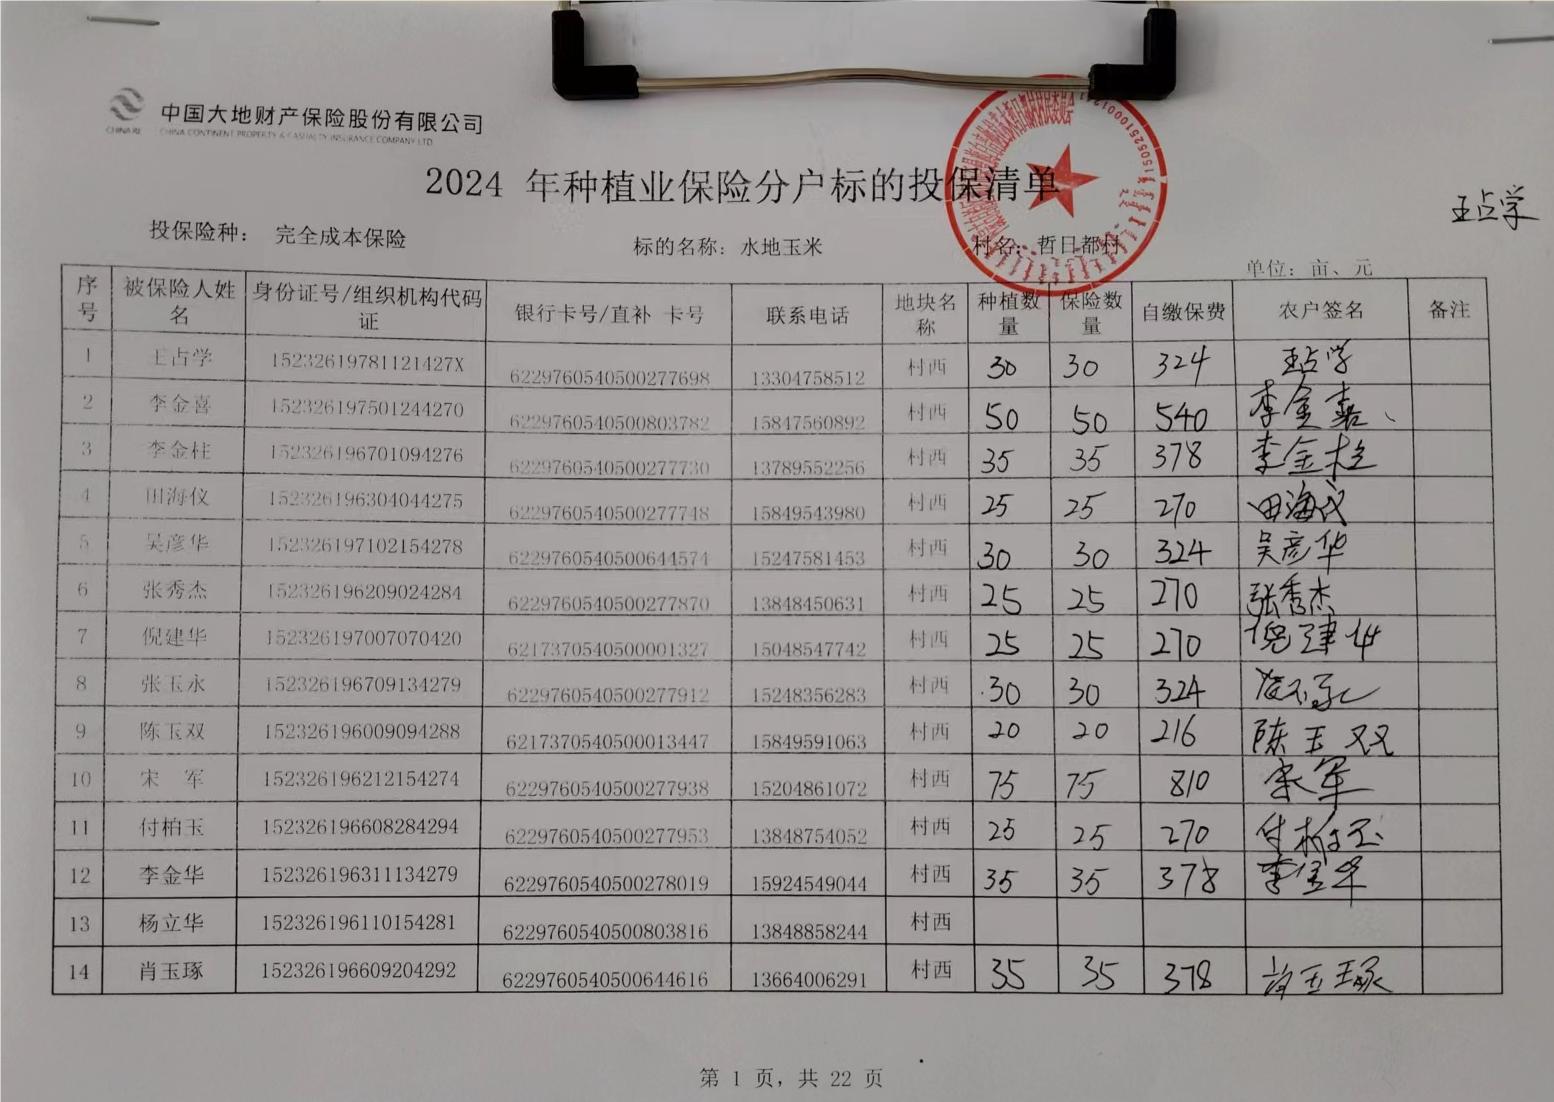 中国大地财产保险股份有限公司
CHINA RE CHINA CONTINENT PROPERTY & CASUALTY INSURANCE COMPANY LTD.
2024 年种植业保险分户标的投保清单
王占学
投保险种： 完全成本保险 标的名称：水地玉米 村名：哲日都村
单位：亩、元
序号 被保险人姓名 身份证号/组织机构代码证 银行卡号/直补 卡号 联系电话 地块名称 种植数量 保险数量 自缴保费 农户签名 备注
1 王占学 15232619781121427X 6229760540500277698 13304758512 村西 30 30 324 王占学
2 李金喜 152326197501244270 6229760540500803782 15847560892 村西 50 50 540 李金喜
3 李金柱 152326196701094276 6229760540500277730 13789552256 村西 35 35 378 李金柱
4 田海仪 152326196304044275 6229760540500277748 15849543980 村西 25 25 270 田海仪
5 吴彦华 152326197102154278 6229760540500644574 15247581453 村西 30 30 324 吴彦华
6 张秀杰 152326196209024284 6229760540500277870 13848450631 村西 25 25 270 张秀杰
7 倪建华 152326197007070420 6217370540500001327 15048547742 村西 25 25 270 倪建华
8 张玉永 152326196709134279 6229760540500277912 15248356283 村西 30 30 324
9 陈玉双 152326196009094288 6217370540500013447 15849591063 村西 20 20 216 陈玉双
10 宋 军 152326196212154274 6229760540500277938 15204861072 村西 75 75 810 宋军
11 付柏玉 152326196608284294 6229760540500277953 13848754052 村西 25 25 270 付柏玉
12 李金华 152326196311134279 6229760540500278019 15924549044 村西 35 35 378 李金华
13 杨立华 152326196110154281 6229760540500803816 13848858244 村西
14 肖玉琢 152326196609204292 6229760540500644616 13664006291 村西 35 35 378 肖玉琢
第 1 页，共 22 页